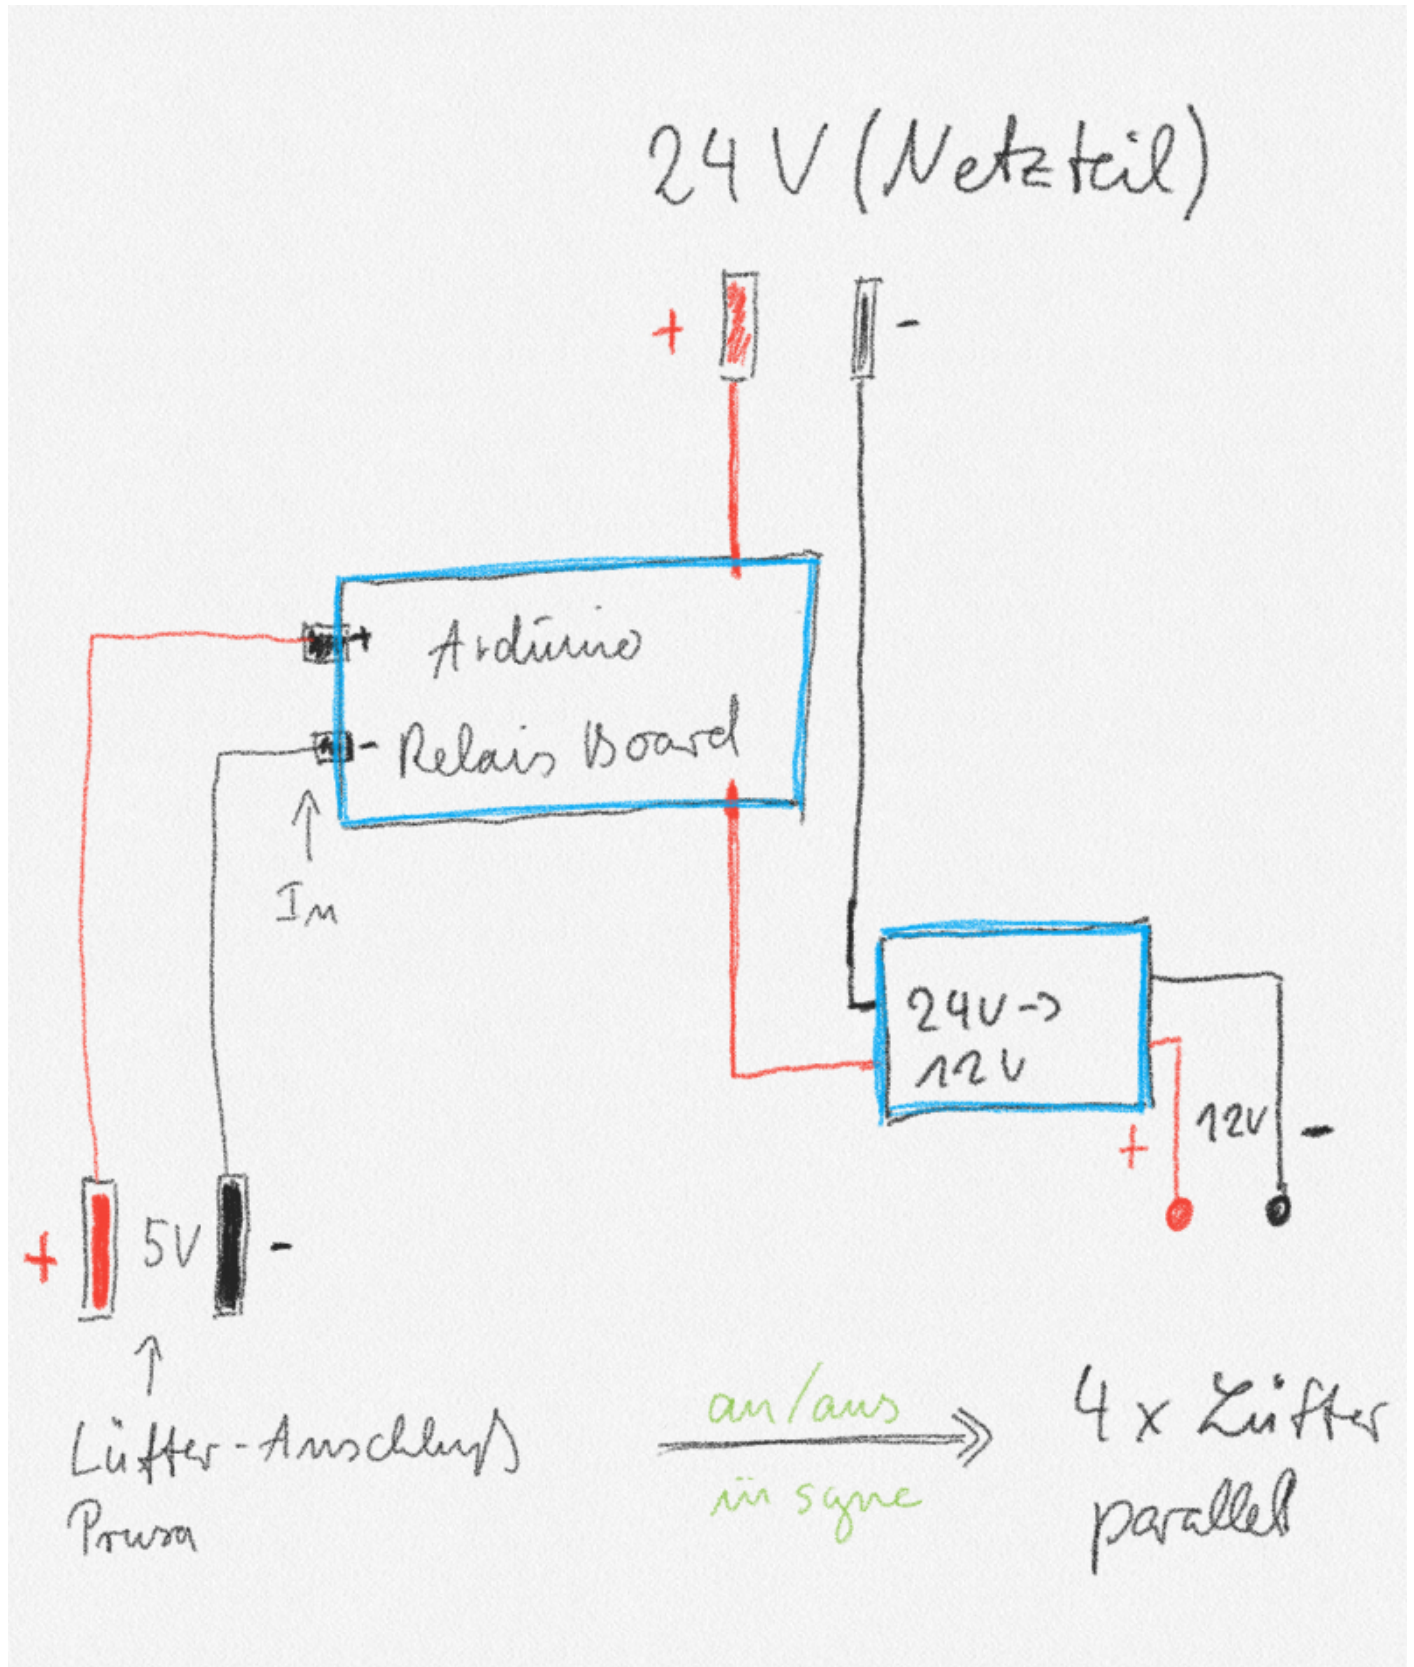 24 V (Netzteil)
+ -
+ Arduino
- Relais Board
In
24V ->
12V
+ 12V -
+ 5V -
Lüfter-Anschluß
Prusa
an/aus
in sync
4 x Lüfter
parallel